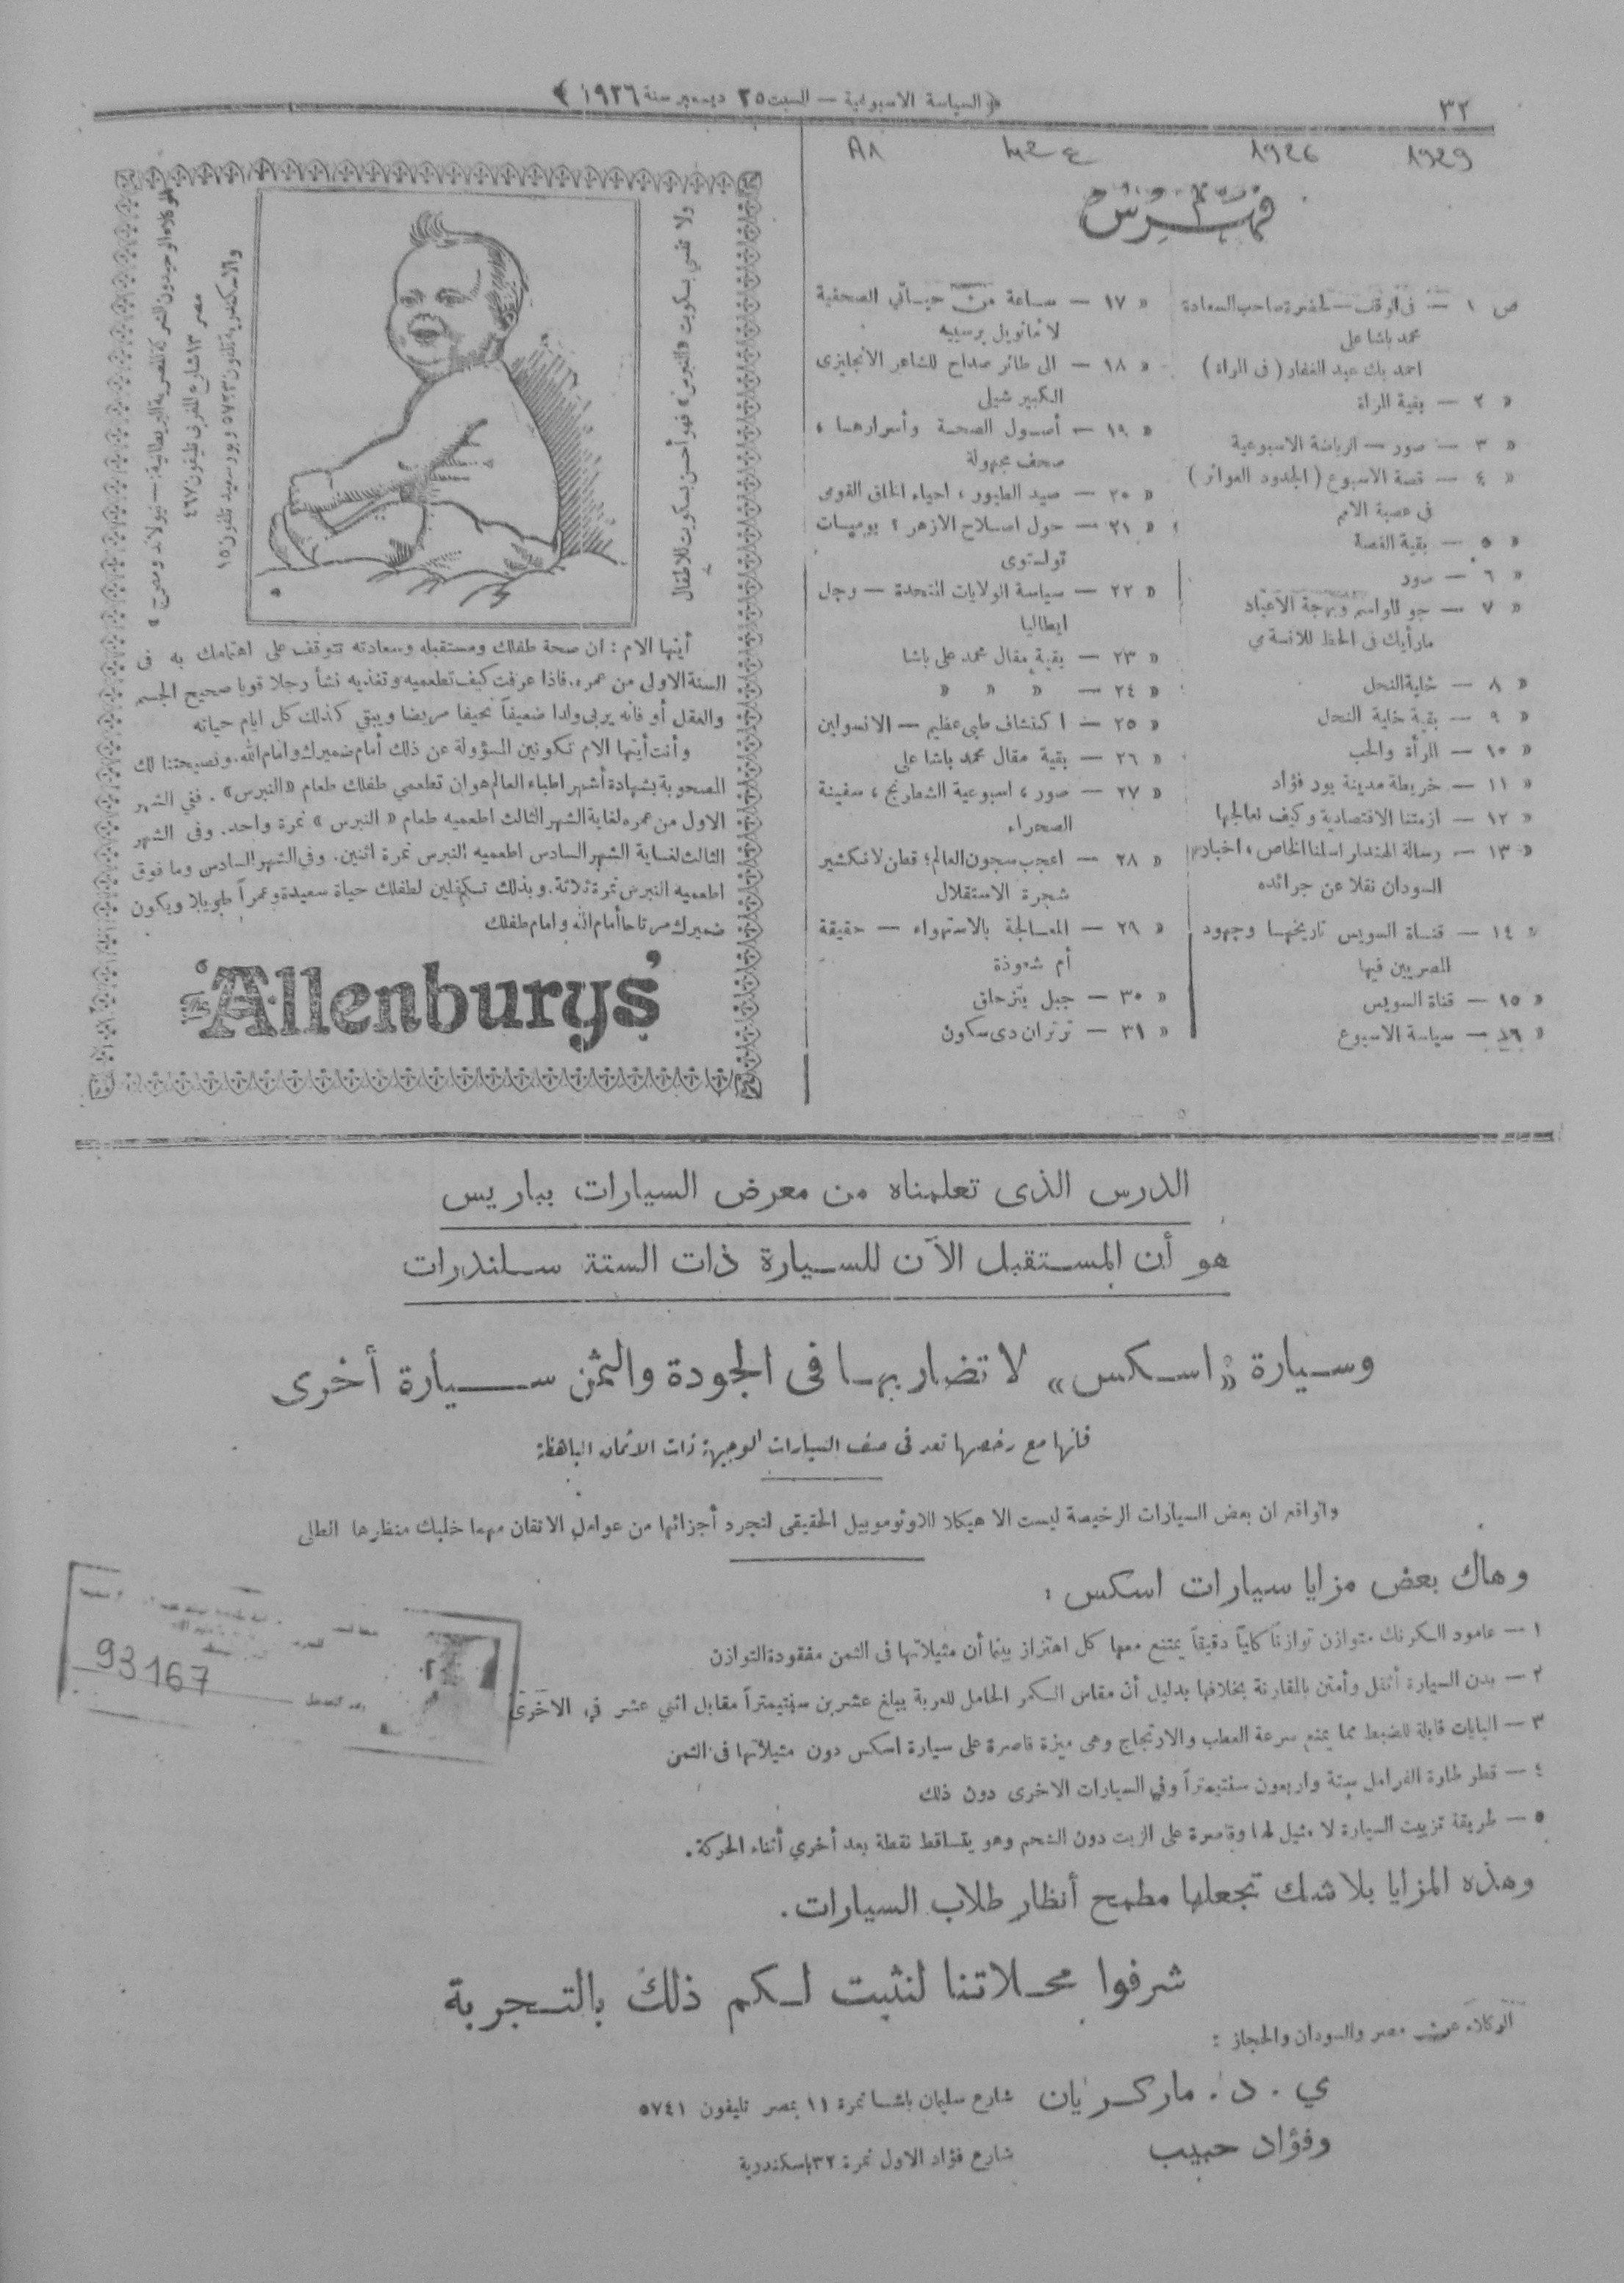 ٣٢
﴿ السياسة الاسبوعية — السبت ٢٥ ديسمبر سنة ١٩٢٦ ﴾
1929
1926
فهرس
ص ١ — فى الوقف — لحضرة صاحب السعادة
محمد باشا على
احمد بك عبد الغفار ( فى المرأة )
« ٢ — بقية المرأة
« ٣ — صور — الرياضة الاسبوعية
« ٤ — قصة الاسبوع ( الجدود العواثر )
فى عصبة الامم
« ٥ — بقية القصة
« ٦ — صور
« ٧ — جو المواسم وبهجة الأعياد
مارأيك فى الحظ للآنسة مي
« ٨ — خلية النحل
« ٩ — بقية خلية النحل
« ١٠ — المرأة والحب
« ١١ — خريطة مدينة بور فؤاد
« ١٢ — ازمتنا الاقتصادية وكيف نعالجها
« ١٣ — رسالة الهند لمراسلنا الخاص ، اخبار
السودان نقلا عن جرائده
« ١٤ — قناة السويس تاريخها وجهود
المصريين فيها
« ١٥ — قناة السويس
« ١٦ — سياسة الاسبوع
« ١٧ — ساعة من حياتي الصحفية
لامانويل برسييه
« ١٨ — الى طائر صداح للشاعر الانجليزى
الكبير شيلى
« ١٩ — أصول الصحة وأسرارها ،
صحف مجهولة
« ٢٠ — صيد الطيور ، احياء الخلق القومى
« ٢١ — حول اصلاح الازهر ؟ يوميات
تولستوى
« ٢٢ — سياسة الولايات المتحدة — رجل
ايطاليا
« ٢٣ — بقية مقال محمد على باشا
« ٢٤ — « « «
« ٢٥ — اكتشاف طبى عظيم — الانسولين
« ٢٦ — بقية مقال محمد باشا على
« ٢٧ — صور ، اسبوعية الشطرنج ، سفينة
الصحراء
« ٢٨ — اعجب سجون العالم ؛ قطن لانكشير
شجرة الاستقلال
« ٢٩ — المعالجة بالاستهواء — حقيقة
أم شعوذة
« ٣٠ — جبل ينزحلق
« ٣١ — ترتران دى سكون
ولا تنسي بسكويت « النبرس » فهو أحسن بسكويت للاطفال
الوكلاء الوحيدون الشركة المصرية البريطانية : — نيولاند ومصرج
مصر ١٣ شارع المغربى تليفون ٤٦٧
والاسكندرية تلفون ٥٧٣٣ وبور سعيد تلفون ١٥
أيتها الام : ان صحة طفلك ومستقبله وسعادته تتوقف على اهتمامك به فى
السنة الاولى من عمره . فاذا عرفت كيف تطعميه وتغذيه نشأ رجلا قويا صحيح الجسم
والعقل أو فانه يربى ولدا ضعيفاً نحيفا مريضا ويبقي كذلك كل ايام حياته
وأنت أيتها الام تكونين المسؤولة عن ذلك أمام ضميرك وامام الله . ونصيحتنا لك
المصحوبة بشهادة أشهر اطباء العالم هو ان تطعمي طفلك طعام « النبرس » . ففي الشهر
الاول من عمره لغاية الشهر الثالث اطعميه طعام « النبرس » نمرة واحد . وفى الشهر
الثالث لغاية الشهر السادس اطعميه النبرس نمرة اثنين . وفي الشهر السادس وما فوق
اطعميه النبرس نمرة ثلاثة . وبذلك تكفلين لطفلك حياة سعيدة وعمراً طويلا ويكون
ضميرك مرتاحا أمام الله وامام طفلك
The Allenburys'
الدرس الذى تعلمناه من معرض السيارات بباريس
هو أن المستقبل الآن للسيارة ذات الستة سلندرات
وسيارة « اسكس » لا تضاربها فى الجودة والثمن سيارة أخرى
فانها مع رخصها تعد فى صف السيارات الوجيهة ذات الاثمان الباهظة
والواقع ان بعض السيارات الرخيصة ليست الا هيكلا للاوتوموبيل الحقيقى لتجرد أجزائها من عوامل الاتقان مهما خلبك منظرها الطلى
وهاك بعض مزايا سيارات اسكس :
١ — عامود الكرنك متوازن توازنا كلياً دقيقاً يمتنع معها كل اهتزاز بينما أن مثيلاتها فى الثمن مفقودة التوازن
٢ — بدن السيارة أثقل وأمتن بالمقارنة بخلافها بدليل أن مقاس الكمر الحامل للعربة يبلغ عشرين سنتيمتراً مقابل اثنى عشر فى الاخرى
٣ — اليايات قابلة للضبط مما يمنع سرعة العطب والارتجاج وهى ميزة قاصرة على سيارة اسكس دون مثيلاتها فى الثمن
٤ — قطر طارة الفرامل ستة واربعون سنتيمتراً وفى السيارات الاخرى دون ذلك
٥ — طريقة تزييت السيارة لا مثيل لها وقاصرة على الزيت دون الشحم وهو يتساقط نقطة بعد أخري أثناء الحركة .
93167
وهذه المزايا بلا شك تجعلها مطمح أنظار طلاب السيارات .
شرفوا محلاتنا لنثبت لكم ذلك بالتجربة
الوكلاء عن مصر والسودان والحجاز :
ي . د . ماركريان شارع سليمان باشا نمرة ١١ بمصر تليفون ٥٧٤١
وفؤاد حبيب شارع فؤاد الاول نمرة ٣٢ باسكندرية